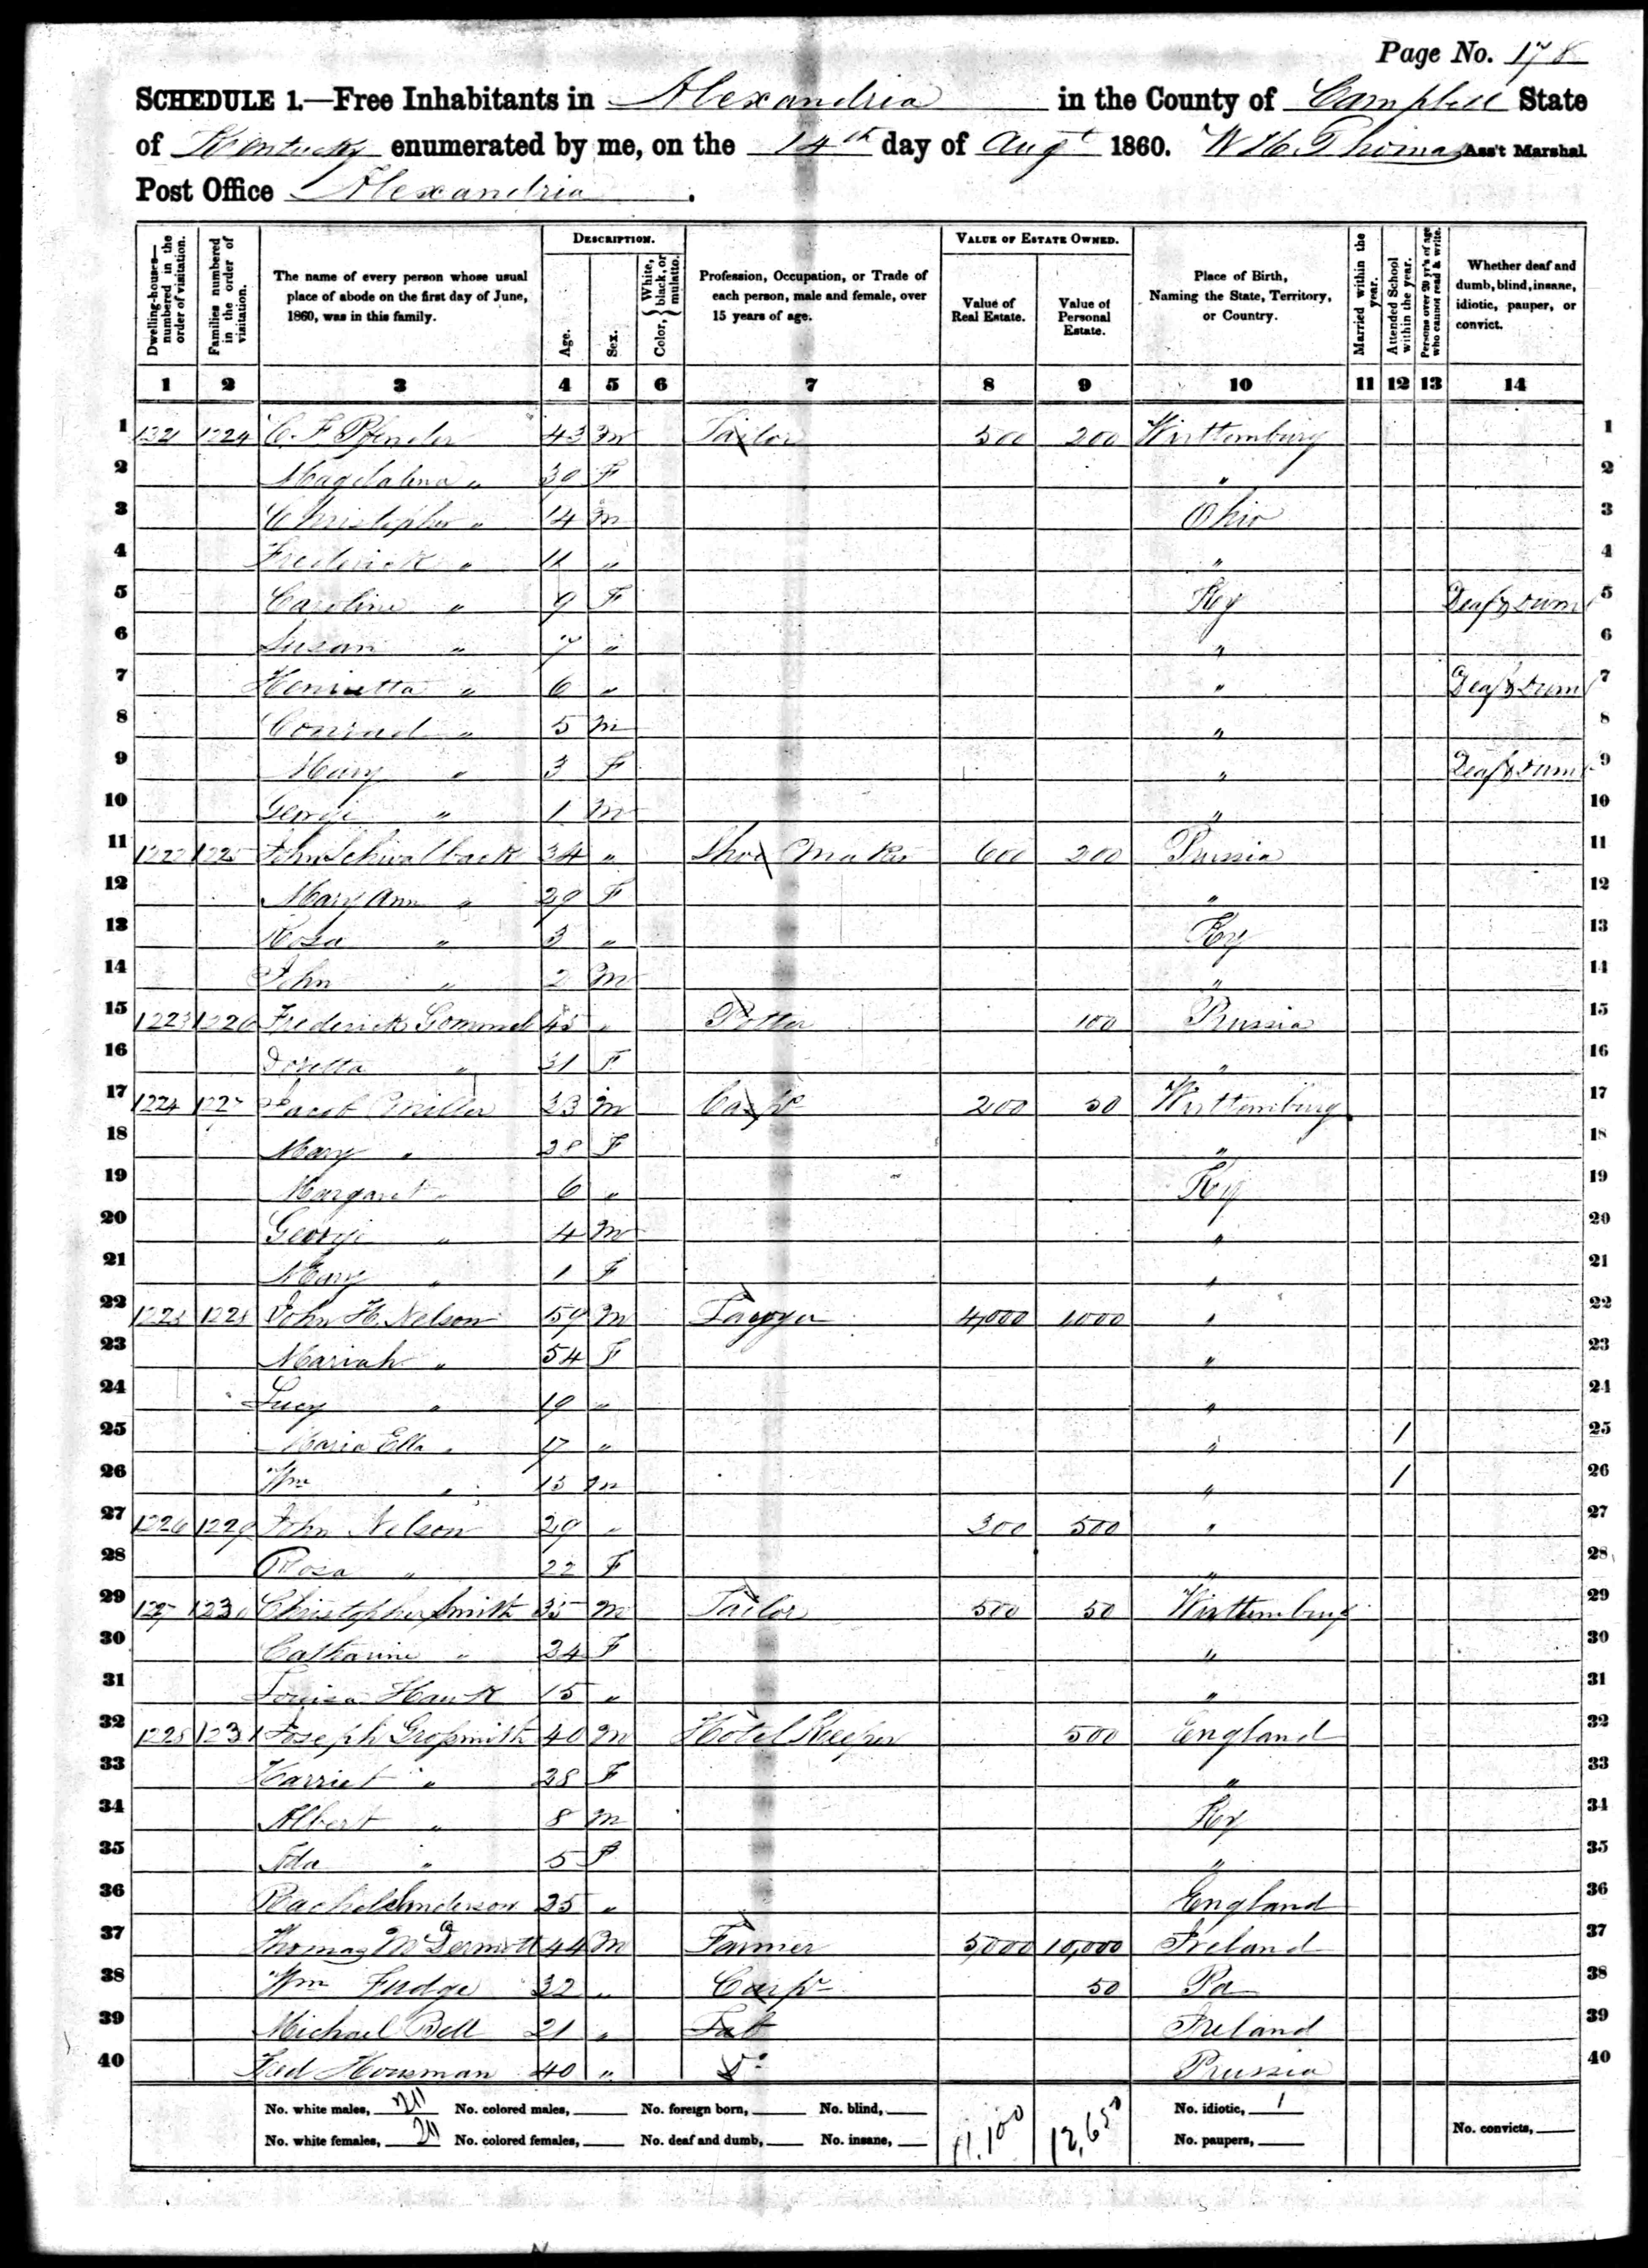 Page No. 178
SCHEDULE 1.—Free Inhabitants in Alexandria in the County of Campbell State
of Kentucky enumerated by me, on the 14th day of Augt 1860. W H Thomas Ass't Marshal.
Post Office Alexandria.
Dwelling-houses—numbered in the order of visitation.
Families numbered in the order of visitation.
The name of every person whose usual place of abode on the first day of June, 1860, was in this family.
DESCRIPTION.
Age.
Sex.
Color, { White, black, or mulatto.
Profession, Occupation, or Trade of each person, male and female, over 15 years of age.
VALUE OF ESTATE OWNED.
Value of Real Estate.
Value of Personal Estate.
Place of Birth, Naming the State, Territory, or Country.
Married within the year.
Attended School within the year.
Persons over 20 yr's of age who cannot read & write.
Whether deaf and dumb, blind, insane, idiotic, pauper, or convict.
1 2 3 4 5 6 7 8 9 10 11 12 13 14
1 1221 1224 C. F. Pfender 43 M Tailor 500 200 Wirttemburg 1
2 Magdalena " 39 F " 2
3 Christopher " 14 M Ohio 3
4 Frederick " 11 " " 4
5 Caroline " 9 F Ky Deaf & Dum 5
6 Susan " 7 " " 6
7 Henrietta " 6 " " Deaf & Dum 7
8 Conrad " 5 M " 8
9 Mary " 3 F " Deaf & Dum 9
10 George " 1 M " 10
11 1222 1225 John Schwalback 34 " Shoe Maker 600 200 Prussia 11
12 Mary Ann " 29 F " 12
13 Rosa " 3 " Ky 13
14 John " 2 M " 14
15 1223 1226 Frederick Gommel 45 " Potter 100 Prussia 15
16 Doretta " 31 F " 16
17 1224 1227 Jacob Miller 33 M Carpr 200 50 Wirttemburg 17
18 Mary " 28 F " 18
19 Margaret " 6 " Ky 19
20 George " 4 M " 20
21 Mary " 1 F " 21
22 1225 1228 John H. Nelson 59 M 4,000 1000 " 22
23 Mariah " 54 F " 23
24 Lucy " 19 " " 24
25 Maria Ella " 17 " " / 25
26 Wm " 13 M " / 26
27 1226 1229 John Nelson 29 " 300 500 " 27
28 Rosa " 22 F " 28
29 1227 1230 Christopher Smith 35 M Tailor 500 50 Wirttemburg 29
30 Catharine " 24 F " 30
31 Louisa Hauk 15 " " 31
32 1228 1231 Joseph Grossmith 40 M Hotel Keeper 500 England 32
33 Harriet " 28 F " 33
34 Albert " 8 M Ky 34
35 Ida " 5 F " 35
36 Rachel Anderson 25 " England 36
37 Thomas McDermott 44 M Farmer 5,000 10,000 Ireland 37
38 Wm Fudge 32 " Carpr 50 Pa 38
39 Michael Bell 21 " Lab Ireland 39
40 Fred Housman 40 " Do Prussia 40
No. white males, 20 No. colored males, No. foreign born, No. blind, 11,100 12,650 No. idiotic, 1
No. white females, 20 No. colored females, No. deaf and dumb, No. insane, No. paupers, No. convicts,